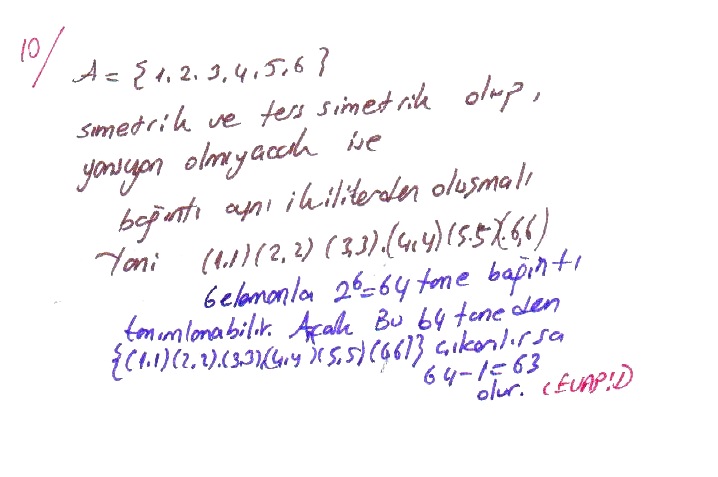 10/
A = { 1. 2. 3, 4, 5, 6 }
simetrik ve ters simetrik olup,
yansıyan olmıyacak ise
bağıntı aynı ikililerden oluşmalı
Yani (1.1) (2, 2) (3,3).(4,4) (5.5)(6,6)
6 elemanla 2⁶=64 tane bağıntı
tanımlanabilir. Ancak Bu 64 taneden
{(1.1) (2, 2).(3.3)(4,4)(5,5)(6,6)} çıkarılırsa
64-1=63
olur. (CEVAP:D)